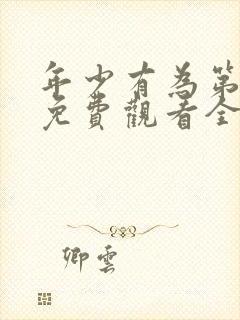 年少有為第
免費觀看全
卿雲